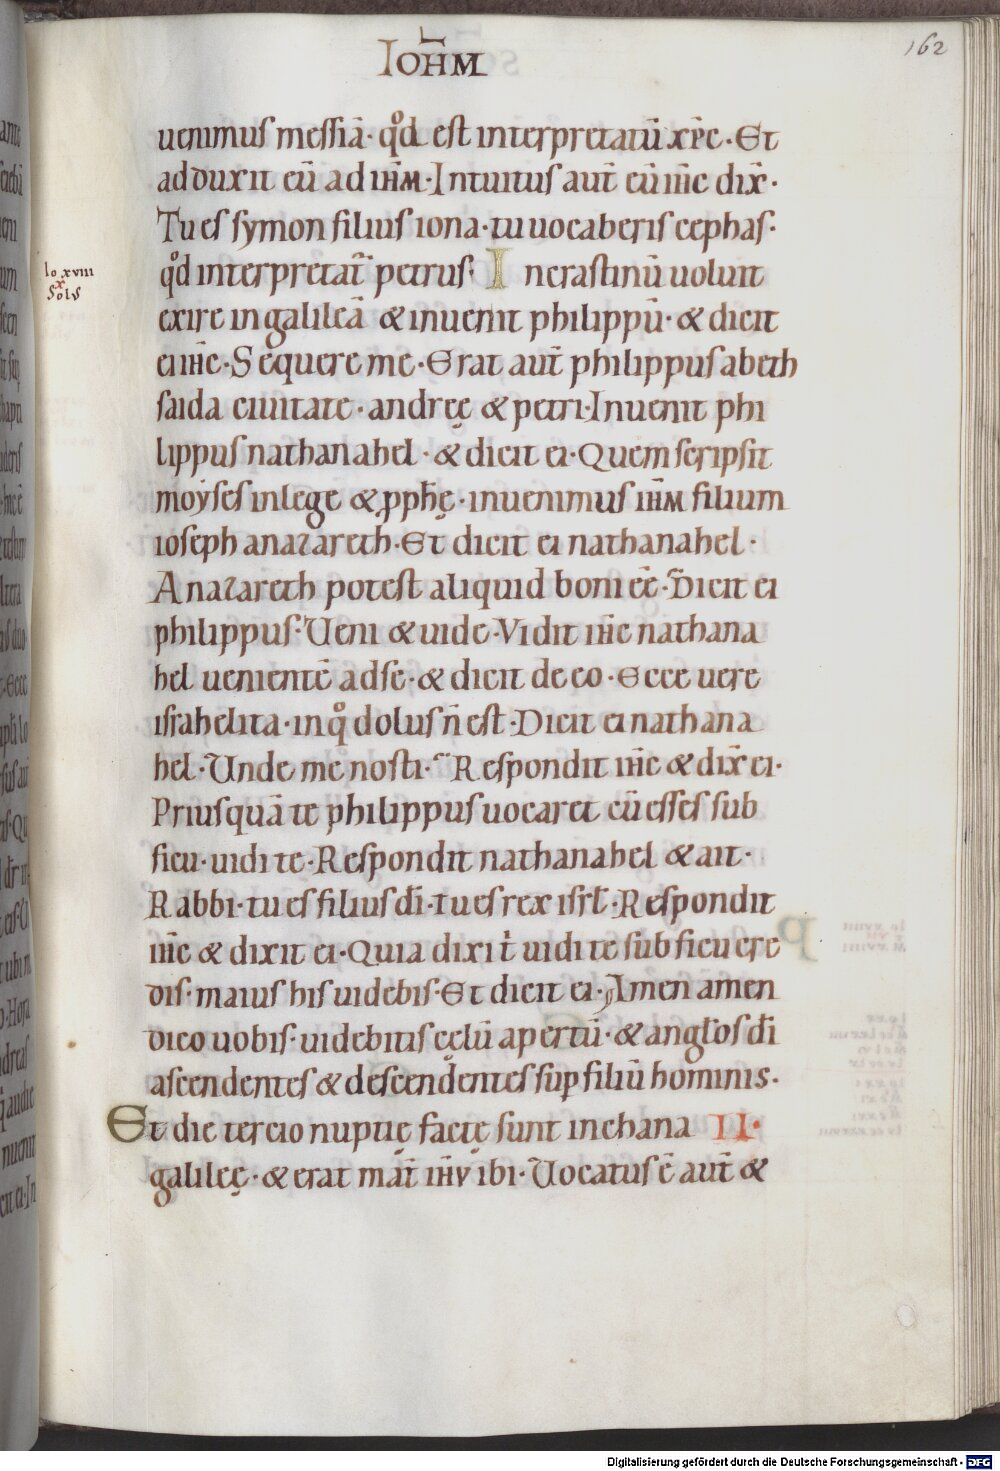 IOHM̅
162
uenimus messiā· qͦd est interpretatū xp̅c· Et
adduxit eū ad ih̅m· Intuitus aut̅ eū ih̅c dix̅·
Tu es symon filius iona· tu uocaberis cephas·
qͦd interpretat̅ petrus· Incrastinū uoluit
Io xviii
x
Solus
exire in galileā & inuenit philippū· & dicit
ei ih̅c· Sequere me· Erat aut̅ philippus abeth
saida ciuitate· andreę & petri· Inuenit phi
lippus nathanahel· & dicit ei· Quem scripsit
moyses in lege & ꝓph̅ę· inuenimus ih̅m filium
ioseph anazareth· Et dicit ei nathanahel·
Anazareth potest aliquid boni ee̅· Dicit ei
philippus· Ueni & uide· Vidit ih̅c nathana
hel uenientē adse· & dicit de eo· Ecce uere
israhelita· inqͦ dolus n̅ est· Dicit ei nathana
hel· Unde me nosti· Respondit ih̅c & dix̅ ei·
Priusquā te philippus uocaret cū esses sub
ficu· uidi te· Respondit nathanahel & ait·
Rabbi· tu es filius di̅· tu es rex isrl̅· Respondit
ih̅c & dixit ei· Quia dixi t̅ uidi te sub ficu cre
dis· maius his uidebis· Et dicit ei· Amen amen
dico uobis· uidebitis cęlū apertū· & angl̅os di̅
ascendentes & descendentes sup̱ filiū hominis·
Et die tercio nuptię factę sunt inchana II·
galileę· & erat mat̅ ih̅v ibi· Uocatus ē aut̅ &
Digitalisierung gefördert durch die Deutsche Forschungsgemeinschaft - DFG